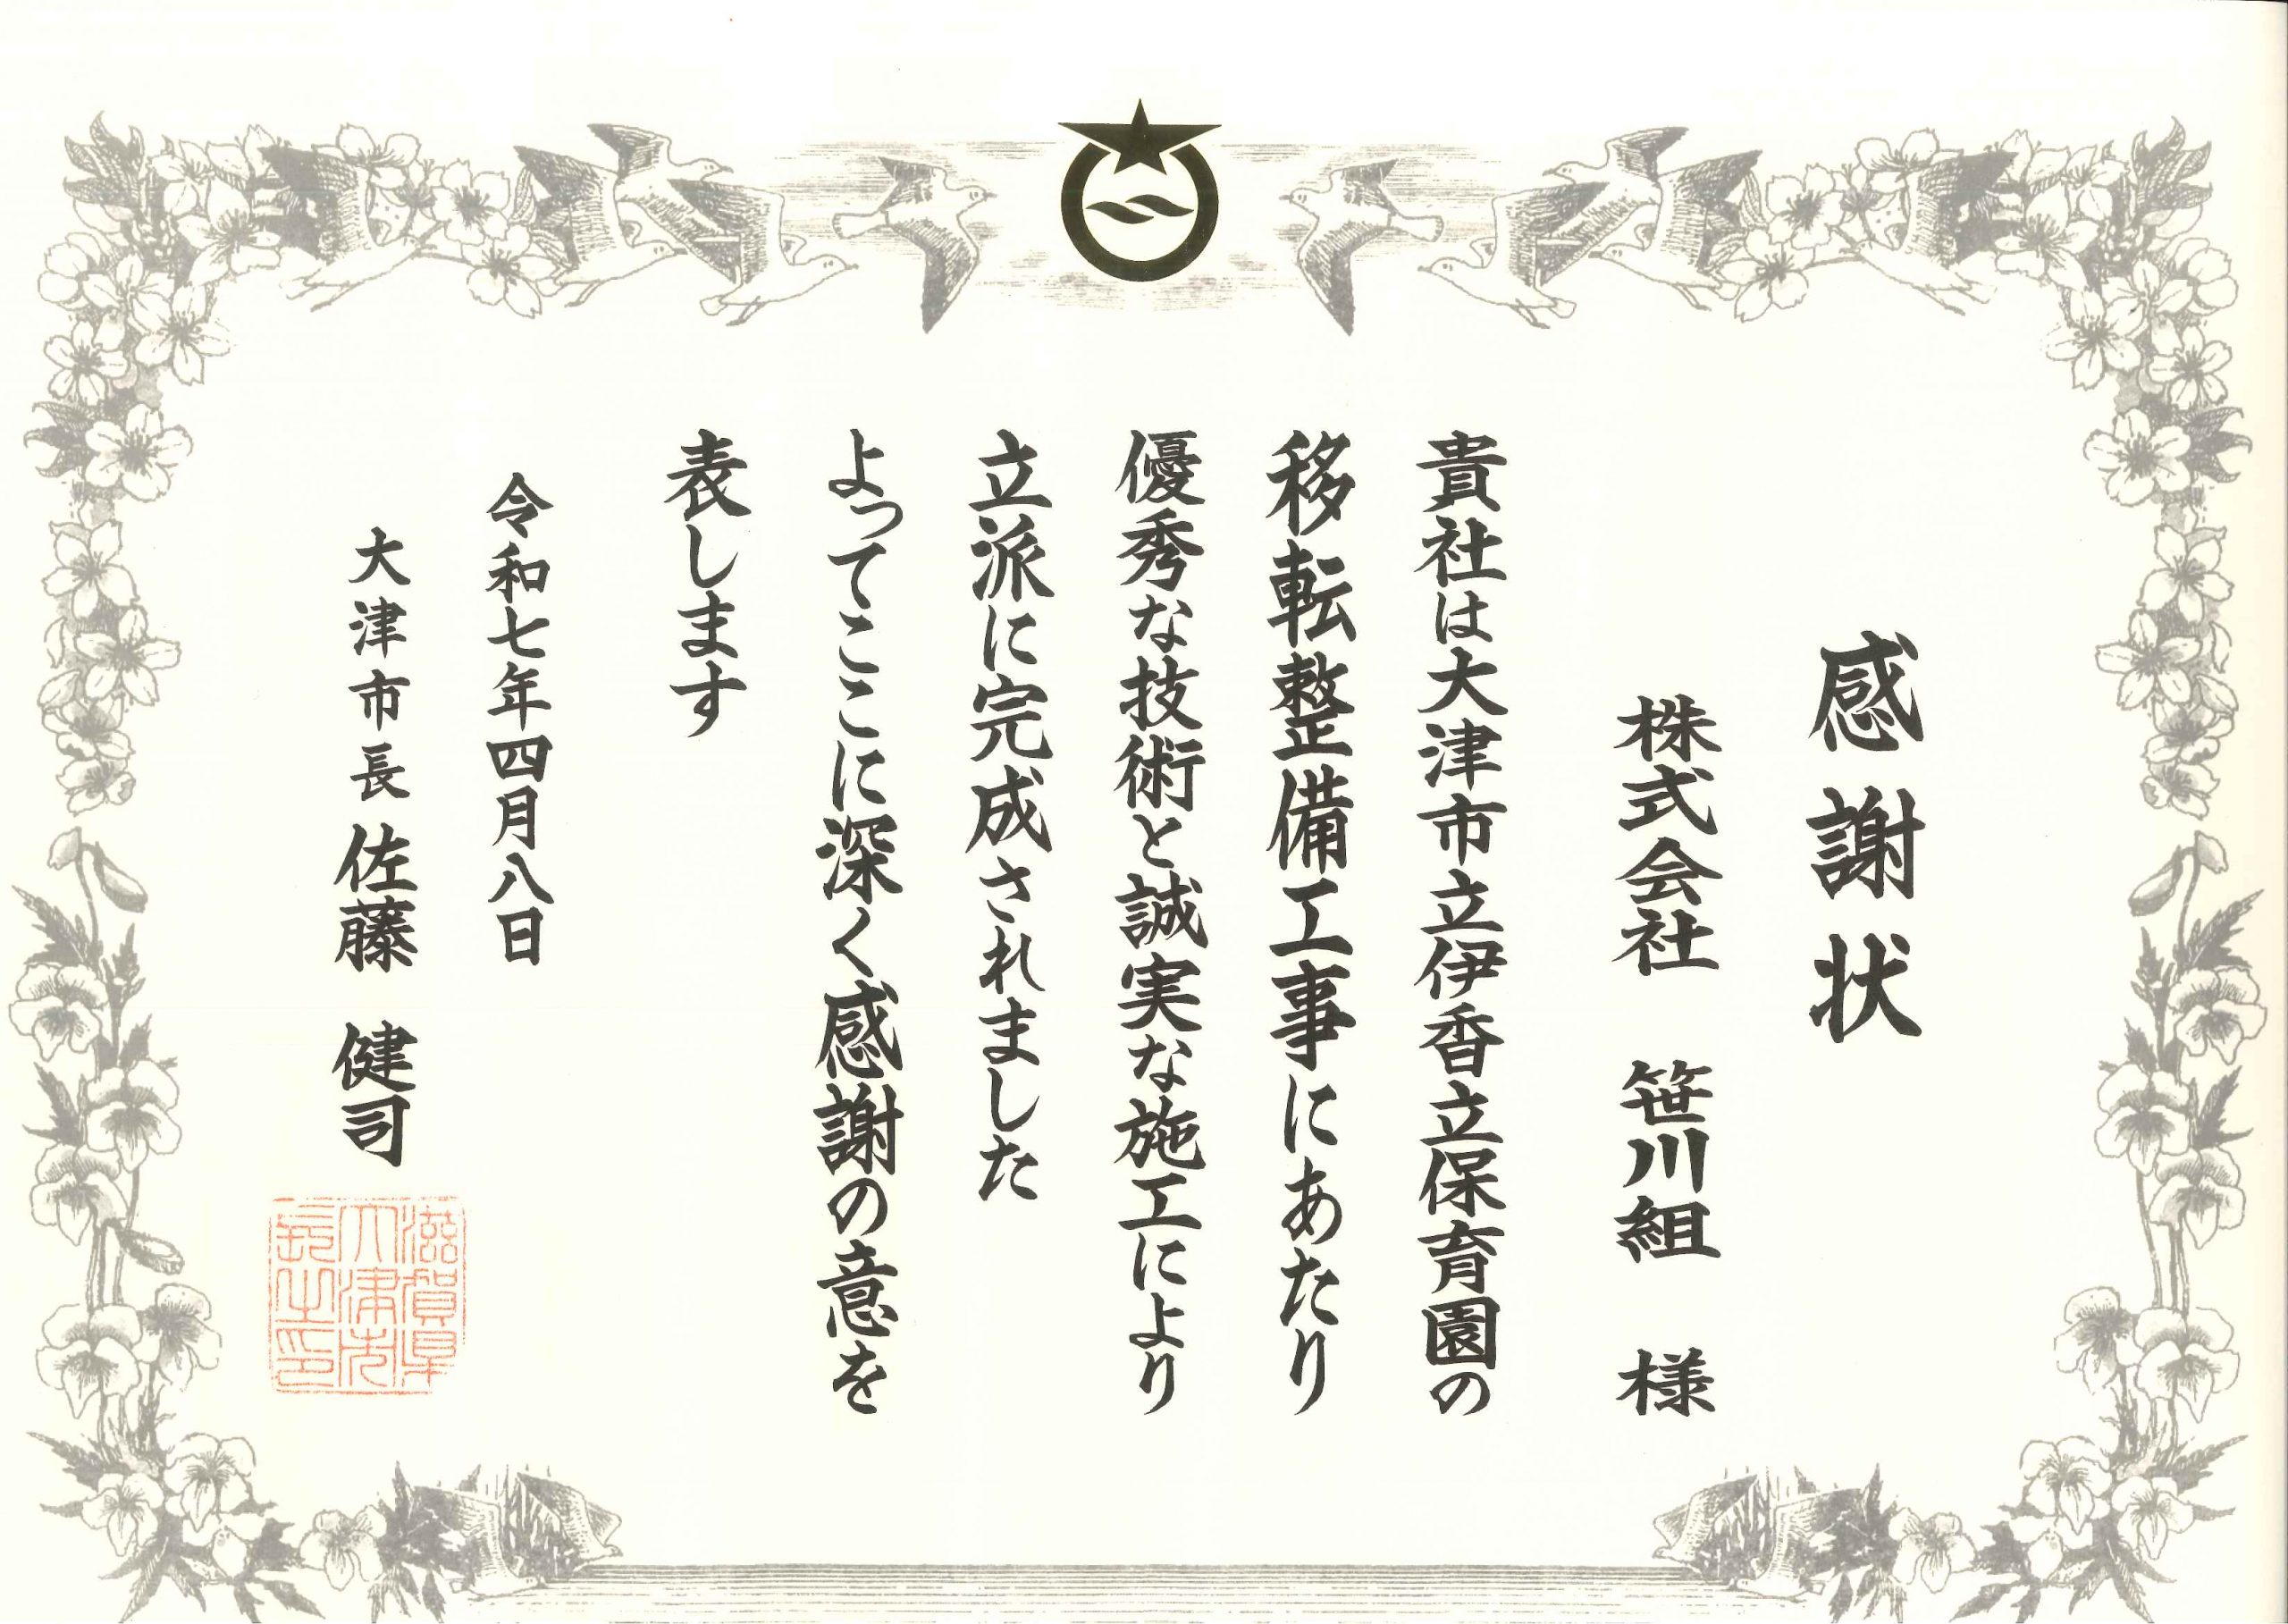 感謝状
株式会社 笹川組 様
貴社は大津市立伊香立保育園の
移転整備工事にあたり
優秀な技術と誠実な施工により
立派に完成されました
よってここに深く感謝の意を
表します
令和七年四月八日
大津市長 佐藤 健司
滋賀県
大津市
長之印